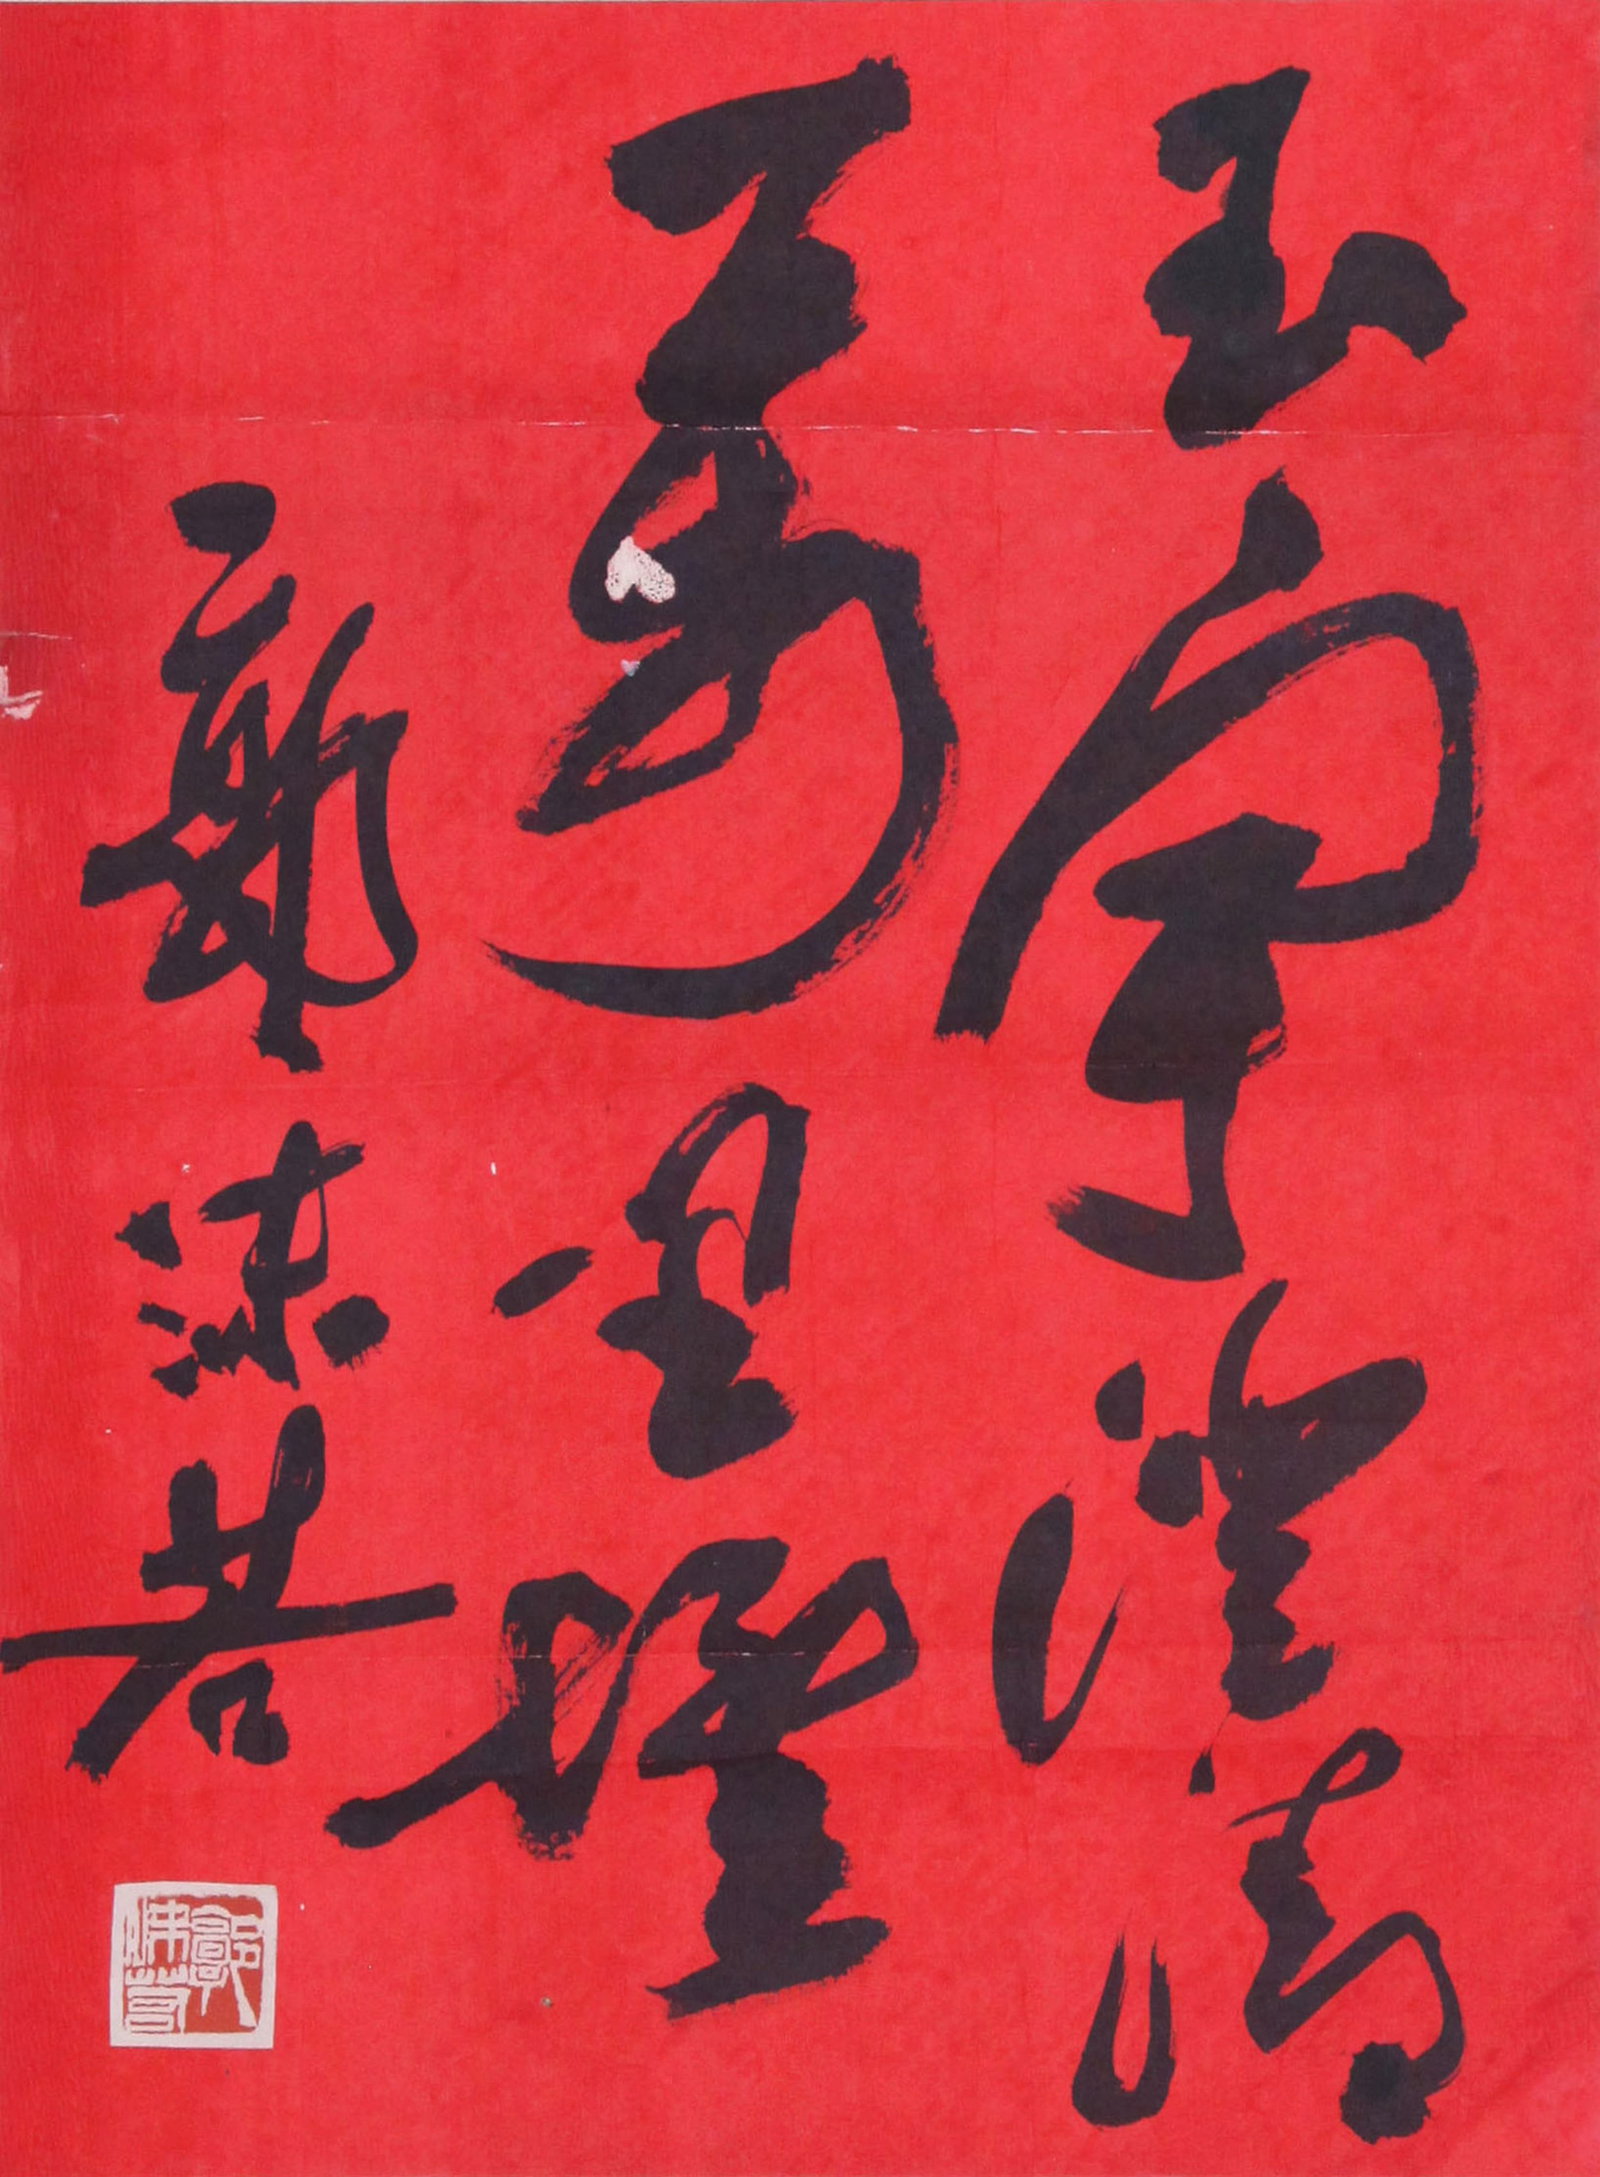 玉宇澄清
萬里
郭沫若
郭沫若